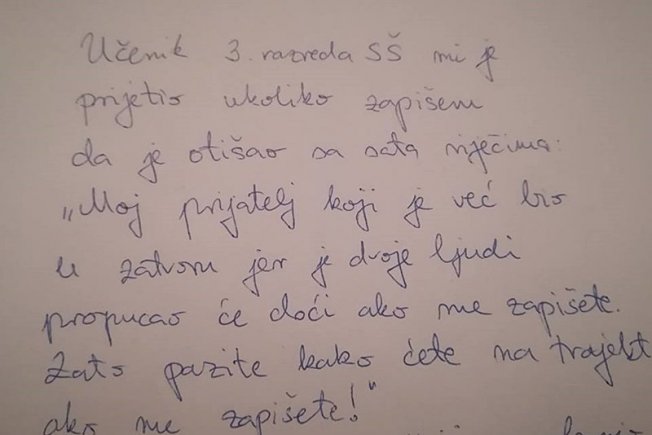 Učenik 3. razreda SŠ mi je
prijetio ukoliko zapišem
da je otišao sa sata riječima:
„Moj prijatelj koji je već bio
u zatvoru jer je dvoje ljudi
propucao će doći ako me zapišete.
Zato pazite kako ćete na trajekt
ako me zapišete!"